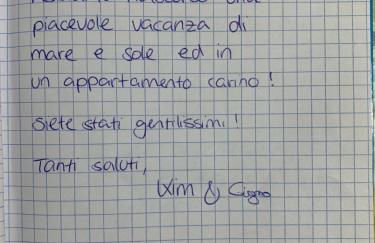 piacevole vacanza di
mare e sole ed in
un appartamento carino!
Siete stati gentilissimi!
Tanti saluti,
Wim &